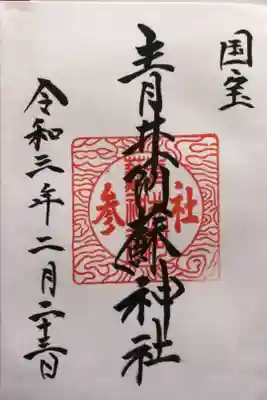 国宝
青井阿蘇神社
参社
令和三年二月二十三日